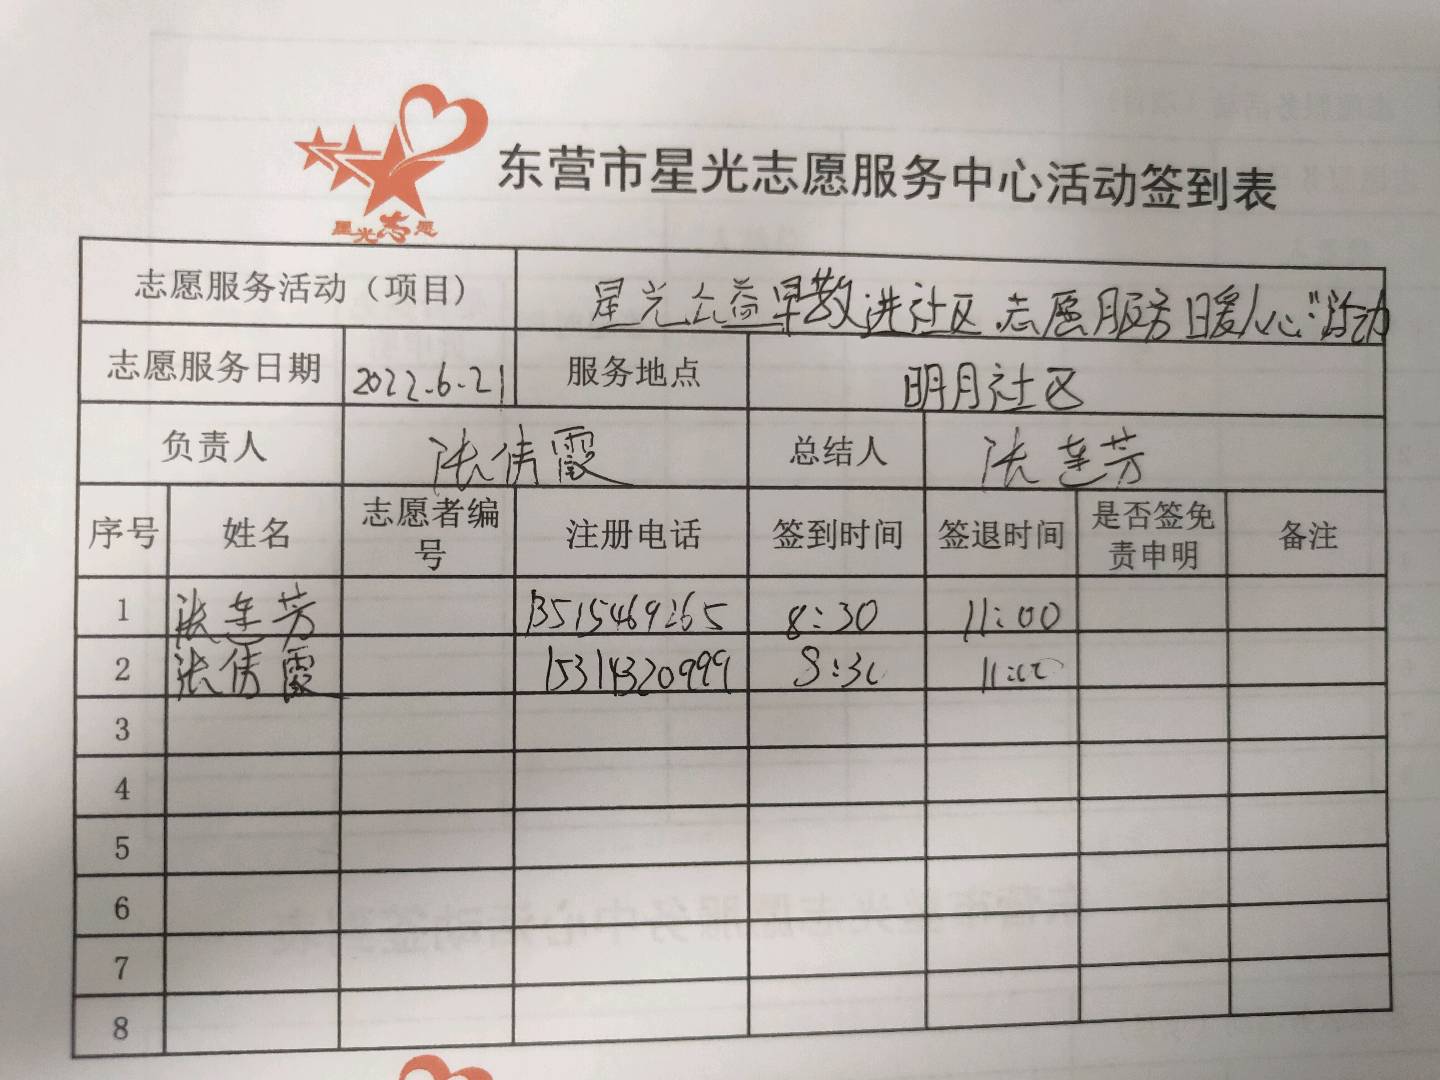 星光志愿
东营市星光志愿服务中心活动签到表
志愿服务活动（项目） 星光公益早教进社区.志愿服务暖人心"活动
志愿服务日期 2022.6.21 服务地点 明月社区
负责人 张倩霞 总结人 张莲芳
序号 姓名 志愿者编号 注册电话 签到时间 签退时间 是否签免责申明 备注
1 张莲芳 13515469265 8:30 11:00
2 张倩霞 15314320999 8:30 11:00
3
4
5
6
7
8